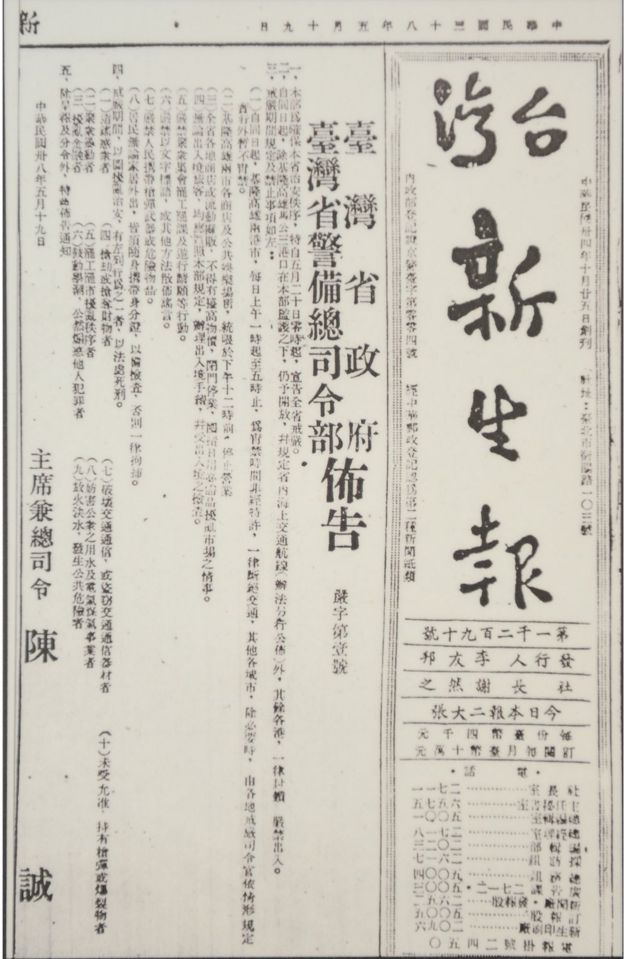 中華民國三十八年五月十九日
新
台灣新生報
中華民國卅四年十月廿五日創刊
社址：臺北市衡陽路一〇三號
內政部登記證京警臺字第零零四號
經中華郵政登記認為第一種新聞紙類
第一千二百九十號
發行人 李友邦
社長 謝然之
今日本報二大張
每份臺幣四千元
訂閱每月臺幣十萬元
電話
臺灣省政府
臺灣省警備總司令部
佈告
嚴字第壹號
一、本部為確保本省治安秩序，特自五月二十日零時起，宣告全省戒嚴。
二、自同日起，除基隆高雄馬公三港口在本部監護之下，仍予開放，幷規定省內海上交通航線（辦法另行公佈）外，其餘各港，一律封鎖，嚴禁出入。
三、戒嚴期間規定及禁止事項如左：
（一）自同日起，基隆高雄兩港市，每日上午一時起至五時止，為宵禁時間，非經特許，一律斷絕交通，其他各城市，除必要時，由各地戒嚴司令官依情形規定
實行外，暫不宵禁。
（二）基隆高雄兩市各商店及公共娛樂場所，統限於下午十二時前，停止營業。
（三）全省各地商店或流動攤販，不得有擡高物價，閉門停業，囤積日用必需品擾亂市場之情事。
（四）無論出入境旅客，均應遵照本部規定，辦理出入境手續，幷受出入境之檢查。
（五）嚴禁聚衆集會罷工罷課及遊行請願等行動。
（六）嚴禁以文字標語，或其他方法散佈謠言。
（七）嚴禁人民攜帶槍彈武器或危險物品。
（八）居民無論家居外出，皆須隨身攜帶身分證，以備檢查，否則一律拘捕。
四、戒嚴期間，以圖擾亂治安，有左列行為之一者，以法處死刑。
（一）造謠惑衆者
（二）聚衆暴動者
（三）擾亂金融者
（四）搶劫或搶奪財物者
（五）罷工罷市擾亂秩序者
（六）鼓動學潮，公然煽惑他人犯罪者
（七）破壞交通通信，或盜竊交通通信器材者
（八）妨害公衆之用水及電氣煤氣事業者
（九）放火決水，發生公共危險者
（十）未受允准，持有槍彈或爆裂物者
五、除呈報及分令外，特此佈告通知
中華民國卅八年五月十九日
主席兼總司令 陳 誠